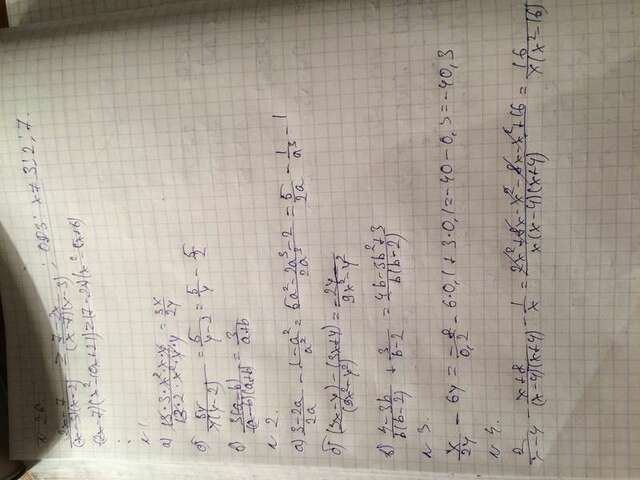 (2x-7)/((x-3)(x-2)) ≥ (7-2x)/((x-7)(x-3)); ОДЗ: x≠3;2;7.
(2x-7)(x²-10x+21)≥(7-2x)(x²-5x+6)
:
№1
а) (13·3·x²·x·y)/(13·2·x²·y·y) = 3x/2y
б) 5y/(y(y-2)) = 5/(y-2) = 5/y - 5/2
в) 3(a-b)/((a-b)(a+b)) = 3/(a+b)
№2.
а) (3-2a)/2a - (1-a²)/a² = (5a²-2a³-2)/2a³ = 5/2a - 1/a³ - 1
б) ((3x-y)-(3x+y))/(9x²-y²) = -2y/(9x²-y²)
в) (4-3b)/(b(b-2)) + 3/(b-2) = (4b-3b²+3)/(b(b-2))
№3.
x/2y - 6y = -8/0,2 - 6·0,1+3·0,1=-40-0,3=-40,3
№4.
2/(x-4) - (x+8)/((x-4)(x+4)) - 1/x = (2x²+8x-x²-8x-x²+16)/(x(x-4)(x+4)) = 16/(x(x²-16))